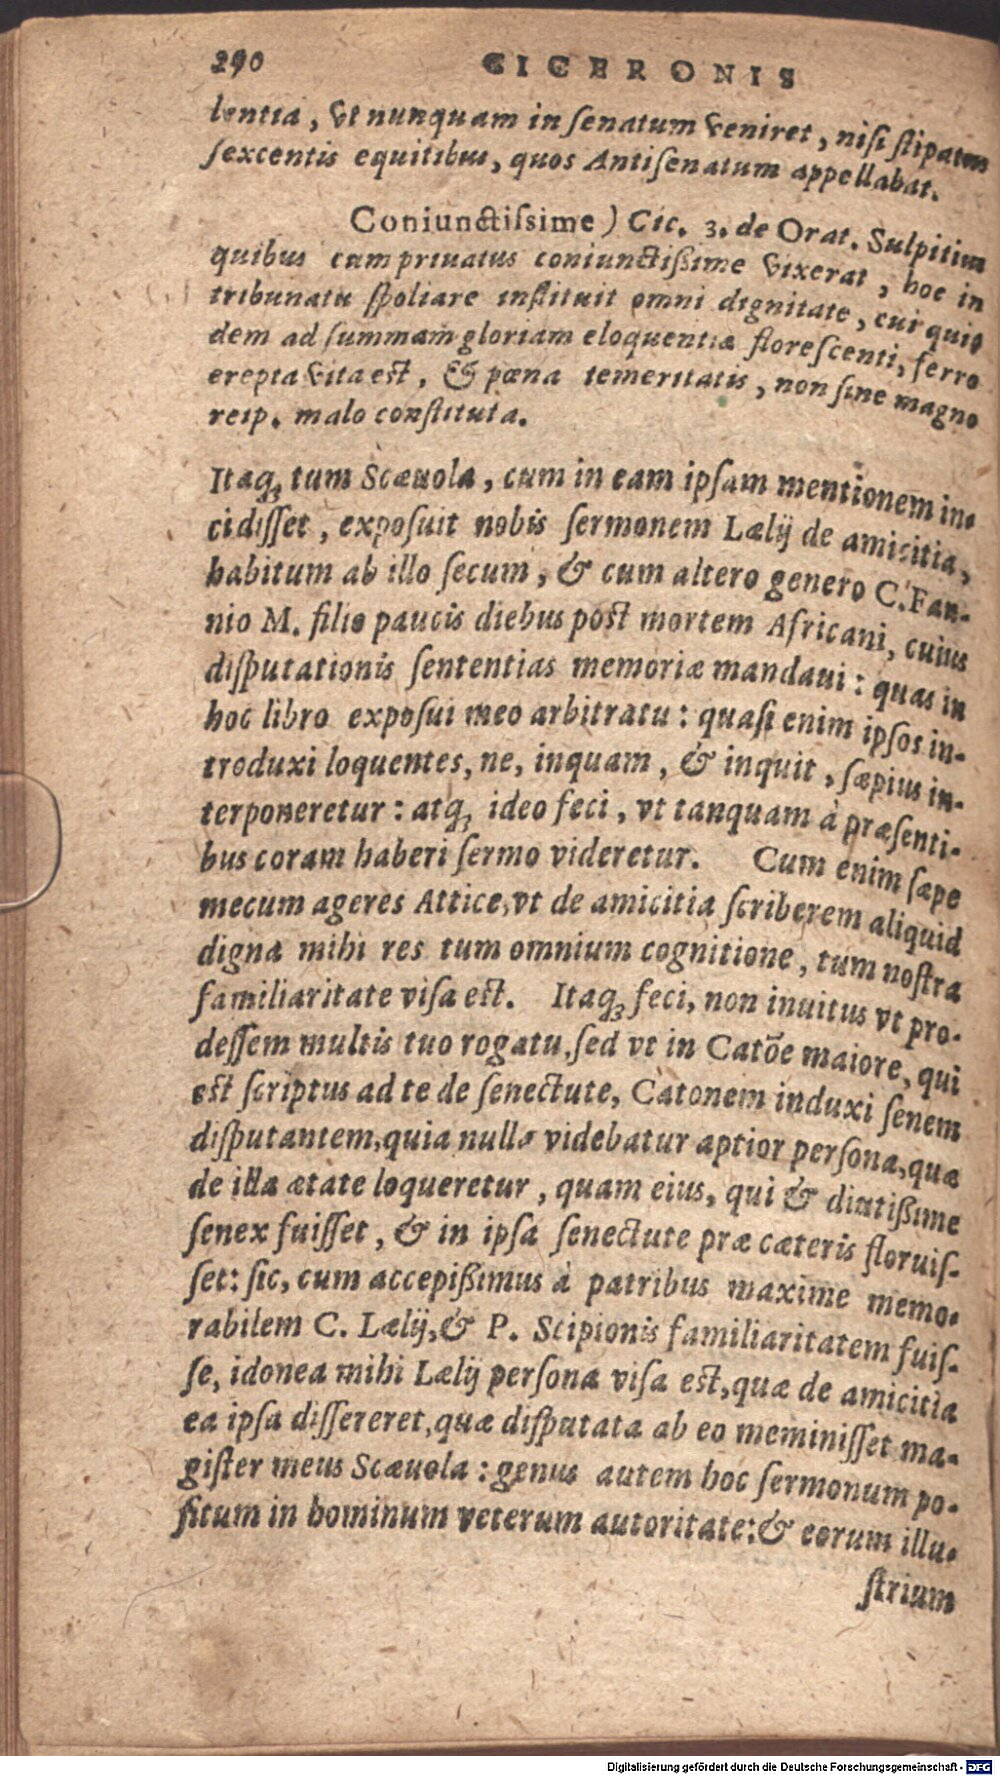 290 CICERONIS
lentia, vt nunquam in senatum veniret, nisi stipatus
sexcentis equitibus, quos Antisenatum appellabat.
Coniunctissime ) Cic. 3. de Orat. Sulpitius
quibus cum priuatus coniunctißime vixerat, hoc in
tribunatu spoliare instituit omni dignitate, cui qui9
dem ad summam gloriam eloquentiæ florescenti, ferro
erepta vita est, & pœna temeritatis, non sine magno
reip. malo constituta.
Itaq; tum Scæuola, cum in eam ipsam mentionem in-
cidisset, exposuit nobis sermonem Lælij de amicitia,
habitum ab illo secum, & cum altero genero C. Fan-
nio M. filio paucis diebus post mortem Africani, cuius
disputationis sententias memoriæ mandaui: quas in
hoc libro exposui meo arbitratu: quasi enim ipsos in-
troduxi loquentes, ne, inquam, & inquit, sæpius in-
terponeretur: atq; ideo feci, vt tanquam à præsenti-
bus coram haberi sermo videretur. Cum enim sæpe
mecum ageres Attice, vt de amicitia scriberem aliquid
digna mihi res tum omnium cognitione, tum nostra
familiaritate visa est. Itaq; feci, non inuitus vt pro-
dessem multis tuo rogatu. sed vt in Catōe maiore, qui
est scriptus ad te de senectute, Catonem induxi senem
disputantem, quia nulla videbatur aptior persona, quæ
de illa ætate loqueretur, quam eius, qui & diutißime
senex fuisset, & in ipsa senectute præ cæteris floruis-
set: sic, cum accepißimus à patribus maxime memo-
rabilem C. Lælij, & P. Scipionis familiaritatem fuis-
se, idonea mihi Lælij persona visa est, quæ de amicitia
ea ipsa dissereret, quæ disputata ab eo meminisset ma-
gister meus Scæuola: genus autem hoc sermonum po-
situm in hominum veterum autoritate: & eorum illu-
strium
Digitalisierung gefördert durch die Deutsche Forschungsgemeinschaft - DFG